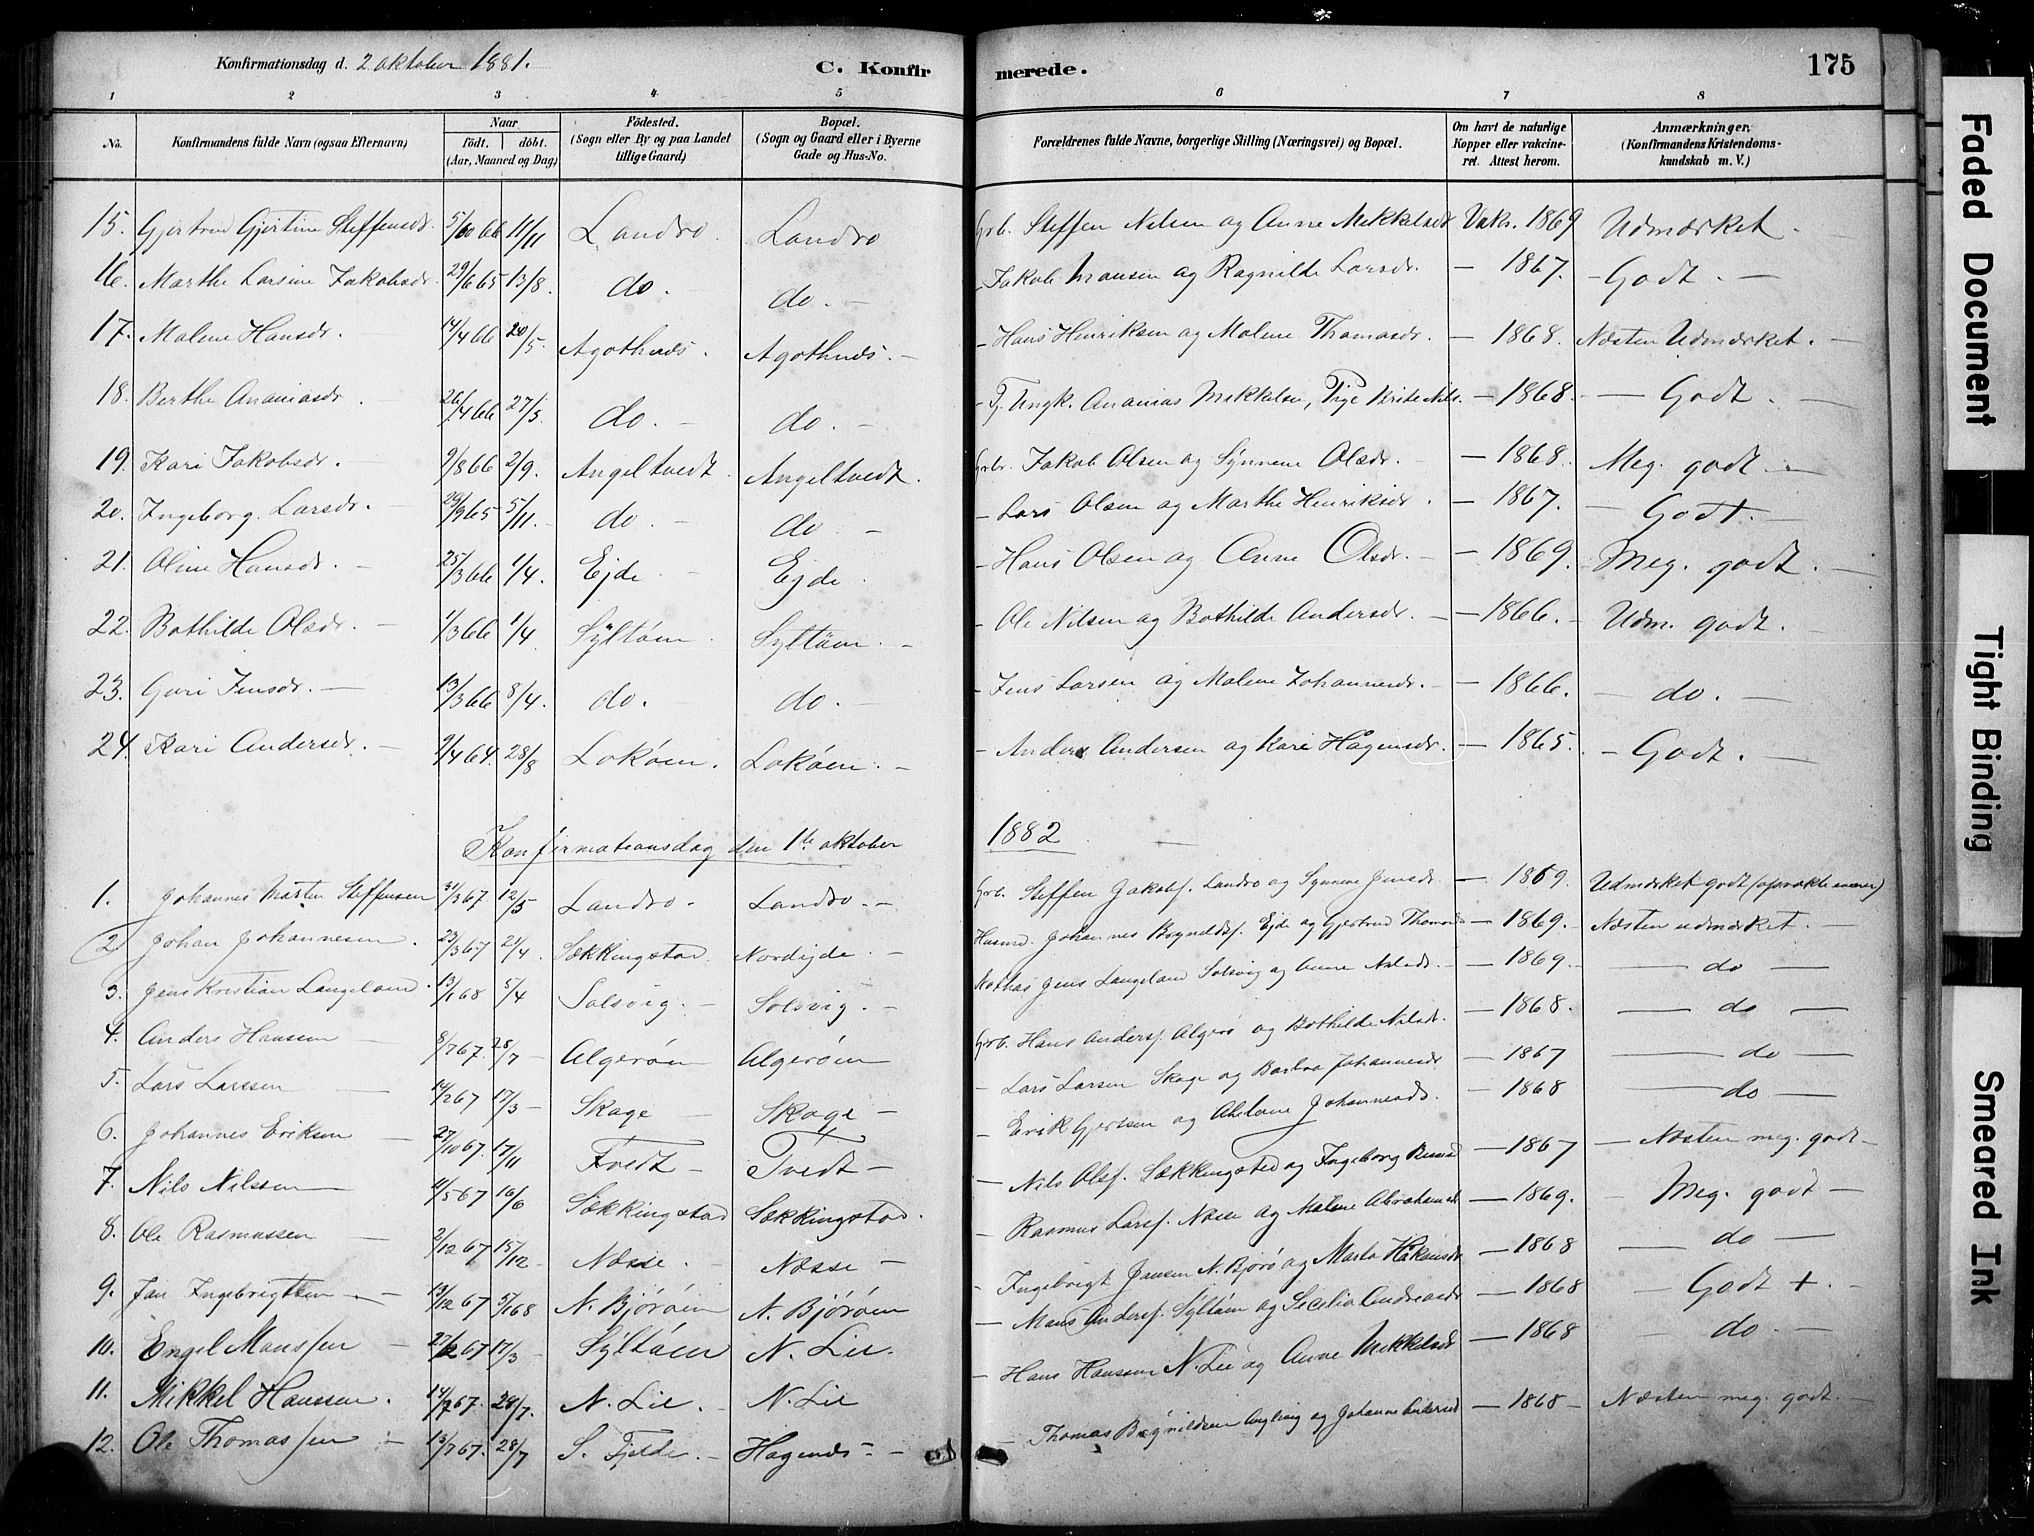 Konfirmationsdag d. 2 oktober 1881. C. Konfirmerede. 175
1 2 3 4 5 6 7 8
No. Konfirmandens fulde Navn (ogsaa Efternavn) Naar født. døbt. (Aar, Maaned og Dag) Fødested. (Sogn eller By og paa Landet tillige Gaard) Bopæl. (Sogn og Gaard eller i Byerne Gade og Hus-No. Forældrenes fulde Navne, borgerlige Stilling (Næringsvei) og Bopæl. Om havt de naturlige Kopper eller vakcineret. Attest herom. Anmærkninger. (Konfirmandens Kristendomskundskab m. V.)
15. Gjertrud Gjertine Steffensdr. 5/10 66 11/11 Landro. Landro Grb. Steffen Nilsen og Anne Mikkelsdr Vakc. 1869 Udmærket. —
16. Marthe Larsine Jakobsdr. 29/6 65 13/8. do. do. — - Jakob Monsen og Ragnilde Larsdr. — 1867. - Godt. —
17. Malene Hansdr. 14/4 66 20/5. Agothnes. Agothnes. — - Hans Henriksen og Malene Thomasdr. — 1868. Næsten Udmærket. —
18. Berthe Ananiasdr. 26/4 66 27/5. do. — do. — - Ungk. Ananias Mikkelsen, Pige Brite Nils. — 1868. — Godt. —
19. Kari Jakobsdr. 9/8 66 2/9. Angeltvedt. Angeltvedt. Grbr. Jakob Olsen og Synneve Olsdr. — 1868. Meg. godt. —
20. Ingeborg Larsdr. 29/9 65 5/11. do. — do. — - Lars Olsen og Marthe Henriksdr. — 1867. — Godt. —
21. Oline Hansdr. — 25/3 66 1/4. Ejde — Ejde. - Hans Olsen og Anne Olsdr. — — 1869. Meg. godt. —
22. Bothilde Olsdr. — 1/3 66 1/4. Syltøen. Syltøen. — - Ole Nilsen og Bothilde Andersdr. — — 1866. — Udm. godt. —
23. Guri Jensdr. — 13/3 66 8/4. do. do. — - Jens Larsen og Malene Johannesdr. — — 1866. — do. —
24. Kari Andersdr. — 9/4 64. 28/8 Lokøen. Lokøen. — - Anders Andersen og Kari Hågensdr. — 1865. - Godt. —
Konfirmationsdag den 1te oktober 1882
1. Johannes Martin Steffensen 31/3 67 12/5 Landro. Landro. — Grb. Steffen Jakobs. Landro og Synneve Jensdr. — 1869. Udmærket godt
2 Johan Johannesen. 23/3 67 21/4. Sækkingstad Nordejde. — Husmd. Johannes Ejde og Gjertrud Thomasdr — 1869. Næsten udmærket. —
3. Jens Kristian Langeland. 13/1 68 5/4 Solsvig. — Solsvig. — Jens Langeland Solsvig og Anne Nilsdr. — 1869. — do —
4. Anders Hansen — 8/7 67. 28/7 — Algerøen Algerøen Grb. Hans Anders. Algerø og Bothilde Nilsdr. — 1868. — do —
5. Lars Larssen — 14/2 67 17/3 — Skage — Skage — - Lars Larsen Skage og Barbro Johannesdr — 1867 — do —
6. Johannes Eriksen — 27/10 67. 17/11 Tvedt — Tvedt — - Erik Gjertsen og Johannesdr. — 1868 — do —
7. Nils Nilssen — 4/5 67 16/6 Sækkingstad Sækkingstad. — Nils Ols. Sækkingstad og Ingeborg — 1867 — Næsten meg. godt —
8. Ole Rasmussen — 2/12 67 15/12. — Næsse. — Næsse — - Rasmus Lars. Næsse og Malene Abrahamsdr — 1869. — Meg. godt —
9. Jan Ingebrigtsen — 13/12 67 5/1 68 N. Bjørøen N. Bjørøen - Ingebrigt Jansen N. Bjørø og Marta Håkonsdr — 1868 — do —
10. Engel Monssen — 27/2 67 17/3 — Syltøen N. Lie. - Mons Anders. Syltøen og Sesilia Andreasdr — 1868 — Godt + . —
11. Mikkel Hanssen. 14/7 67. 28/7. — N. Lie. — N. Lie - Hans Hanssen N. Lie og Anne Mikkelsdr — 1868 — do. —
12. Ole Thomassen — 13/7 67. 28/7 S. Fjelde. — Hagenes — - Thomas og Johanne Andersdr — 1868 — Næsten meg. godt. —
Faded Document
Tight Binding
Smeared Ink